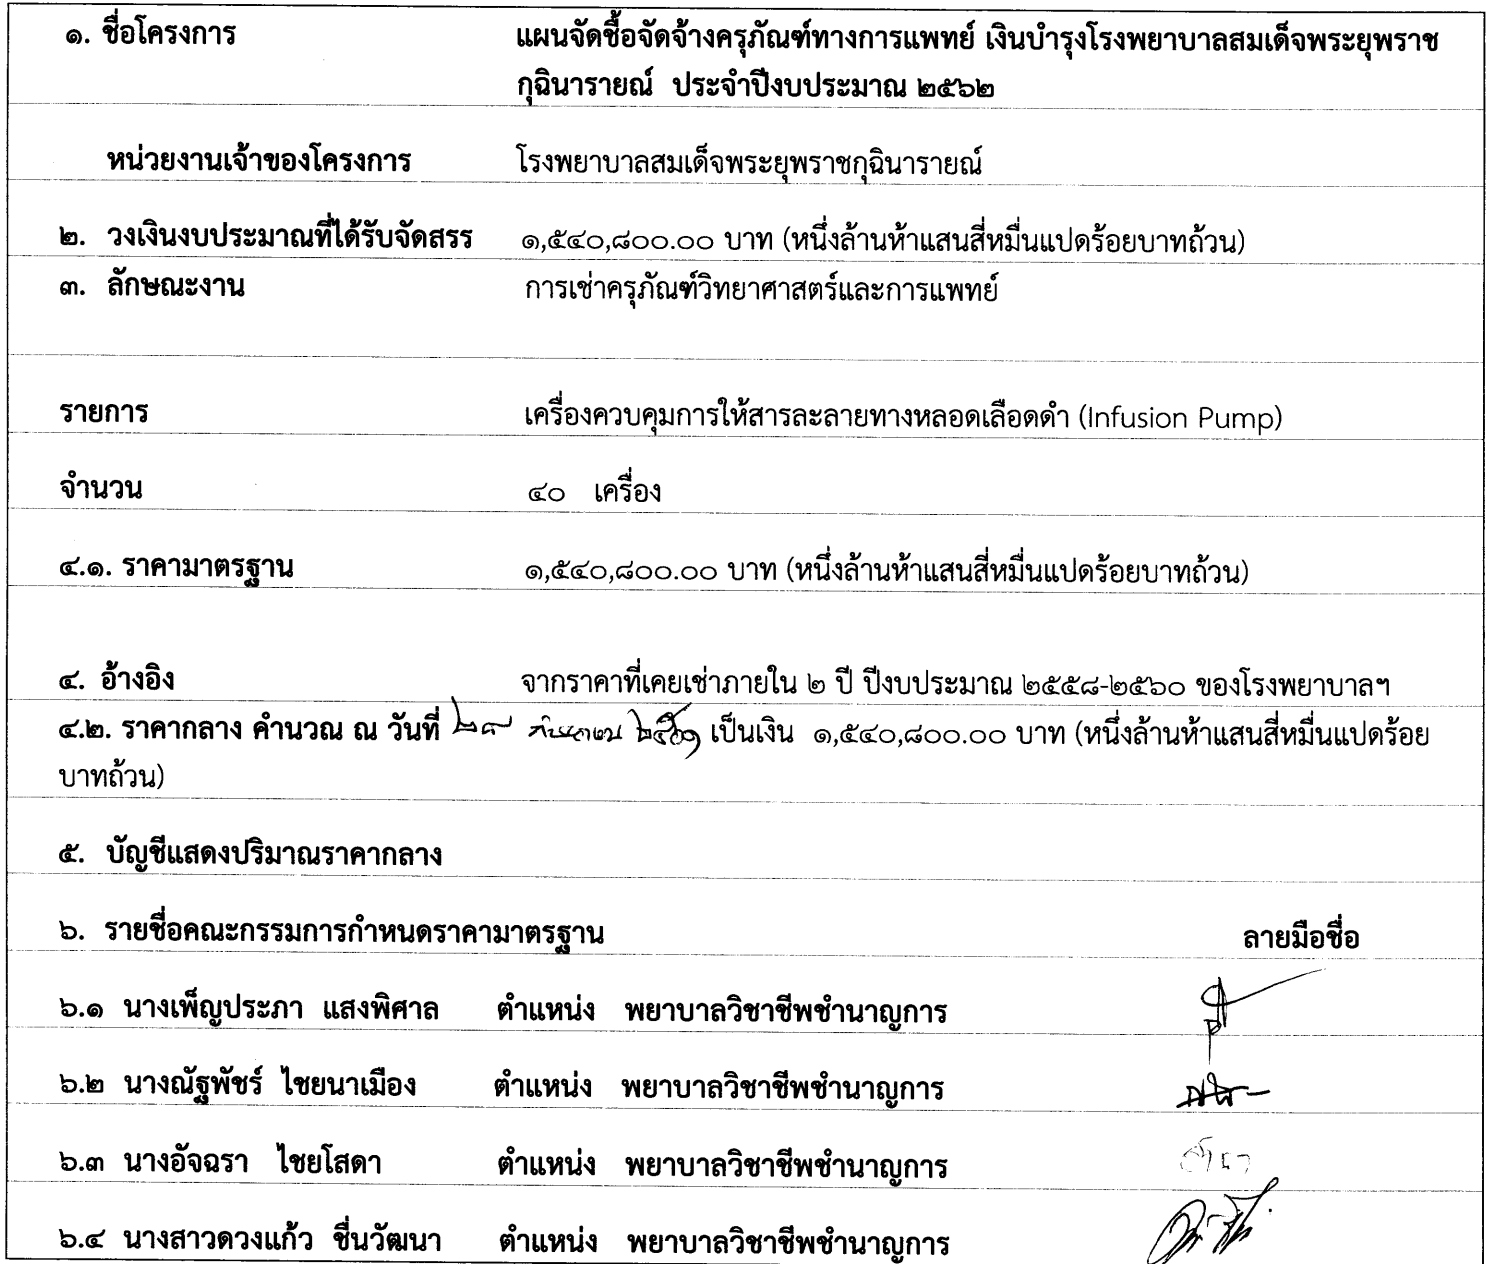 ๑. ชื่อโครงการ แผนจัดซื้อจัดจ้างครุภัณฑ์ทางการแพทย์ เงินบำรุงโรงพยาบาลสมเด็จพระยุพราช
กุฉินารายณ์ ประจำปีงบประมาณ ๒๕๖๒
หน่วยงานเจ้าของโครงการ โรงพยาบาลสมเด็จพระยุพราชกุฉินารายณ์
๒. วงเงินงบประมาณที่ได้รับจัดสรร ๑,๕๔๐,๘๐๐.๐๐ บาท (หนึ่งล้านห้าแสนสี่หมื่นแปดร้อยบาทถ้วน)
๓. ลักษณะงาน การเช่าครุภัณฑ์วิทยาศาสตร์และการแพทย์
รายการ เครื่องควบคุมการให้สารละลายทางหลอดเลือดดำ (Infusion Pump)
จำนวน ๔๐ เครื่อง
๔.๑. ราคามาตรฐาน ๑,๕๔๐,๘๐๐.๐๐ บาท (หนึ่งล้านห้าแสนสี่หมื่นแปดร้อยบาทถ้วน)
๔. อ้างอิง จากราคาที่เคยเช่าภายใน ๒ ปี ปีงบประมาณ ๒๕๕๘-๒๕๖๐ ของโรงพยาบาลฯ
๔.๒. ราคากลาง คำนวณ ณ วันที่ ๒๘ กันยายน ๒๕๖๑ เป็นเงิน ๑,๕๔๐,๘๐๐.๐๐ บาท (หนึ่งล้านห้าแสนสี่หมื่นแปดร้อย
บาทถ้วน)
๕. บัญชีแสดงปริมาณราคากลาง
๖. รายชื่อคณะกรรมการกำหนดราคามาตรฐาน ลายมือชื่อ
๖.๑ นางเพ็ญประภา แสงพิศาล ตำแหน่ง พยาบาลวิชาชีพชำนาญการ
๖.๒ นางณัฐพัชร์ ไชยนาเมือง ตำแหน่ง พยาบาลวิชาชีพชำนาญการ
๖.๓ นางอัจฉรา ไชยโสดา ตำแหน่ง พยาบาลวิชาชีพชำนาญการ
๖.๔ นางสาวดวงแก้ว ชื่นวัฒนา ตำแหน่ง พยาบาลวิชาชีพชำนาญการ